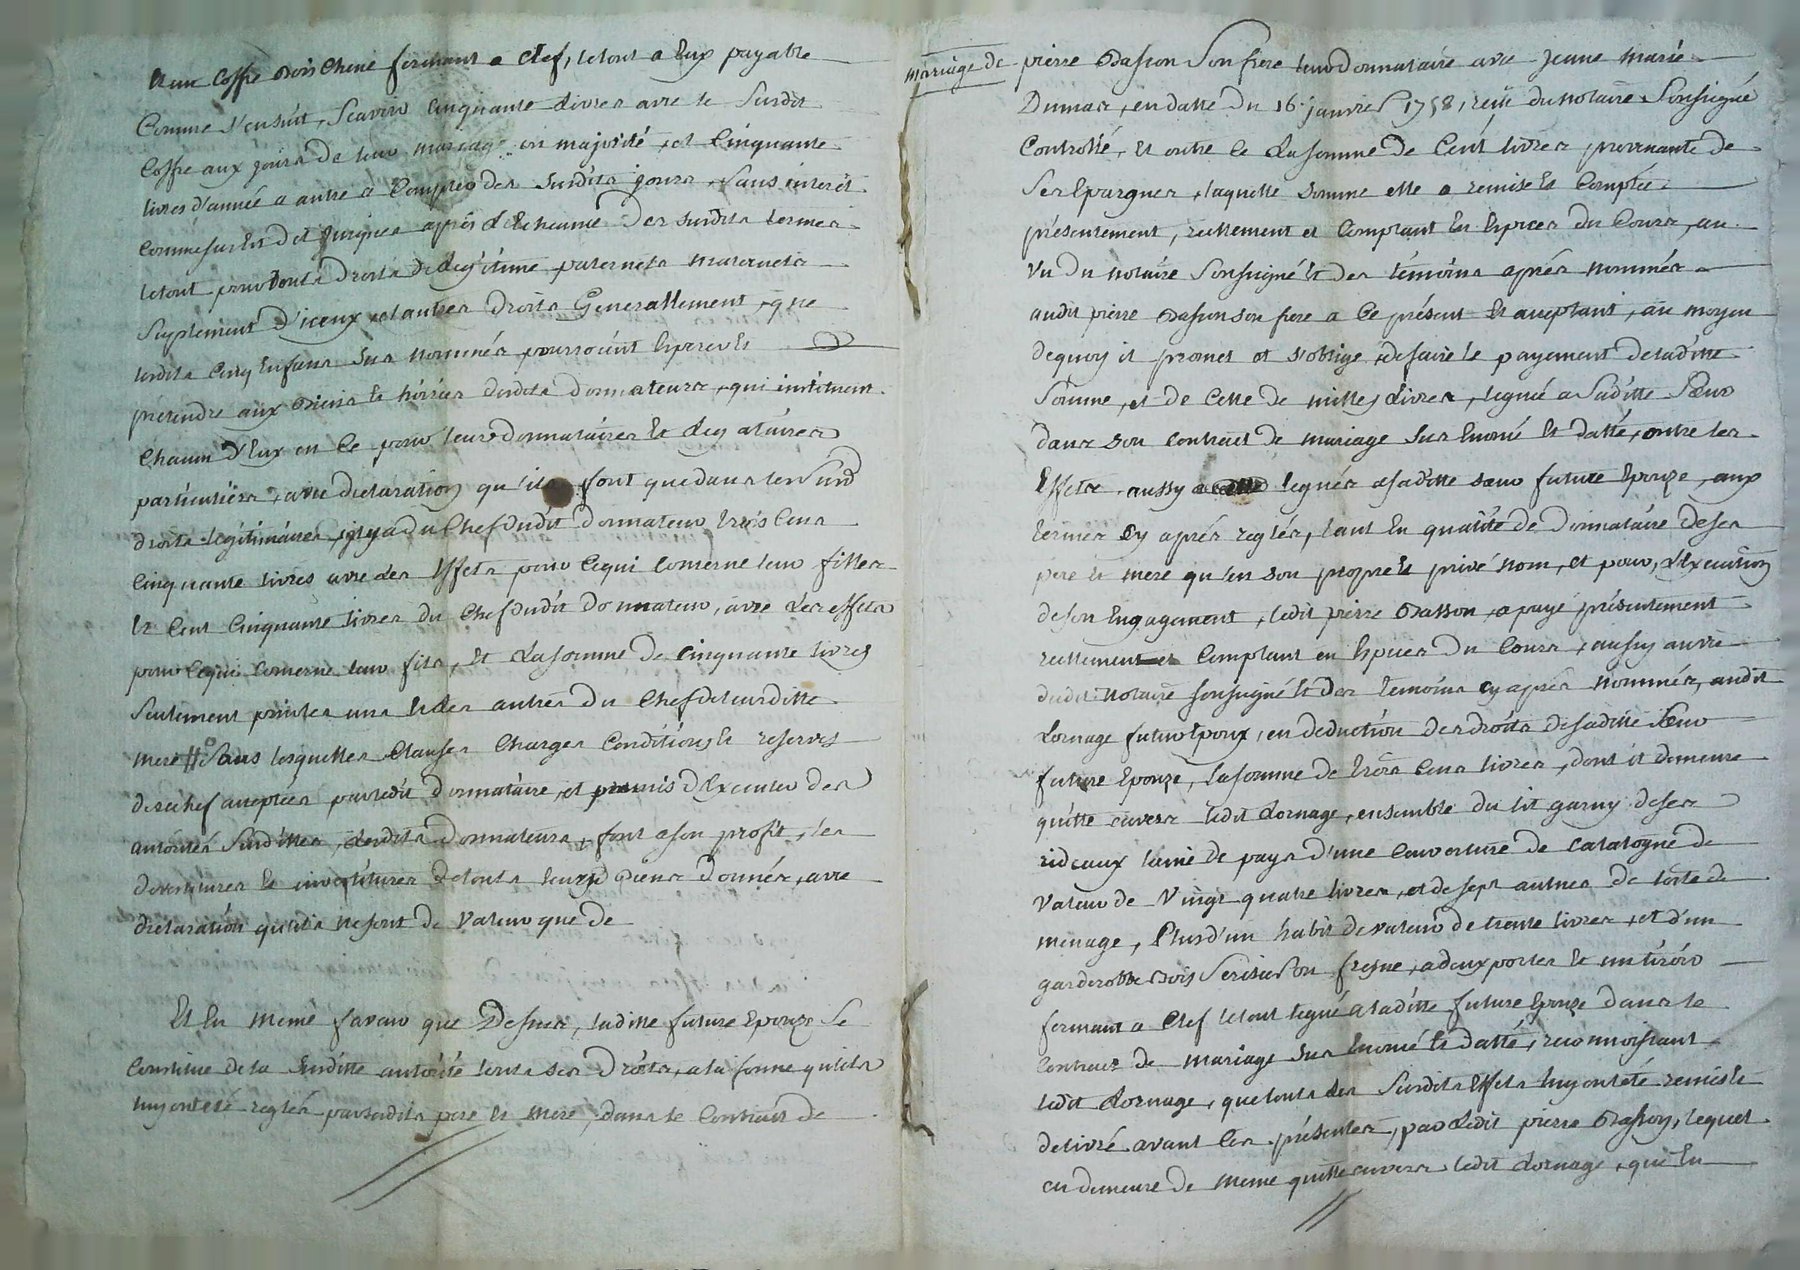 et un Coffre Bois Chene fermant a Clef, letout a Eux payable
Comme s'ensuit, Scavoir Cinquante Livres avec le Susdit
Coffre aux jours de leur mariage ou majorité, et Cinquante
livres d'année a autre a Compter des Susdits jours, Sans interet
letout pour touts droits de Legitime paternels maternels
Suplement d'iceux, et autres droits Generallement, que
lesdits Cinq Enfans Sus nommés pourroient Esperer Et
pretendre aux Biens Et hoiries desdits donnateurs, qui instituent
Chacun d'Eux en Ce pour leurs donnataires Et Legataires
particuliers, avec declaration qu'ils font que dans les Susd
droits legitimaires, il y a du Chef dudit donnateur, trois Cens
Cinquante livres avec des Effets pour Cequi Concerne leur filles
Et Cent Cinquante livres du Chef dudit donnateur, avec des effets
pour Cequi Concerne leur fils, Et Lasomme de Cinquante livres
Seulement pour les uns Et les autres du Chef de leurditte
mere # Sous lesquelles Clauses Charges Conditions Et reserves
derechef acceptées par ledit donnataire, et promis d'Executer des
autorités Susdittes, lesdits donnateurs, font a son profit, les
devestitures Et investitures de touts leurs Biens donnés, avec
declaration qu'ils ne sont de Valeur que de
Et En Meme faveur que Dessus, laditte future Epouze Se
Constitue de la Susditte autorité touts ses Droits, a la forme qu'ils
luy ont été reglés par sesdits pere Et Mere, dans le Contract de
mariage de pierre Basson Son frere leur Donnataire avec jeane marie
Dumas, en datte Du 16 janvier 1758, reçu du notaire Soussigné
Controllé, Et outre Ce Lasomme de Cent livres, provenante de
Ses Epargnes, laquelle Somme elle a remise Et Comptée
présentement, reellement et Comptant En Especes du Cours, au
Vu Du notaire Soussigné Et des témoins aprés nommés
audit pierre Basson son frere a Ce présent Et acceptant, au moyen
dequoy il promet et s'oblige, de faire le payement de laditte
Somme, et de Celle de milles Livres, legué a Saditte Sœur
dans son Contract de mariage Sus Enoncé Et datté, outre les
Effets aussy legués a saditte sœur future Epouze, aux
termes Cy aprés reglés, tant En qualité de donnataire deses
pere Et mere qu'en son propre Et privé Nom, Et pour L'Execution
de son Engagement, ledit pierre Basson, a payé présentement
reellement et Comptant en Especes Du Cours, aussy au vu
dudit Notaire Soussigné Et des témoins cy aprés nommés, audit
Lornage futur Epoux, en deduction des droits de saditte Sœur
future Epouze, Lasomme de trois Cens livres, dont il demeure
quitte envers ledit Lornage, ensemble du lit garny deses
rideaux laine de pays d'une Couverture de Catalogne de
Valeur de Vingt quatre livres, et de sept aulnes de toile de
menage, Plus d'un habit de valeur de trente livres, et d'un
garderobbe Bois Serisier ou fresne, a deux portes Et un tiroir
fermant a Clef letout legué a laditte future Epouze dans le
Contract de mariage Sus Enoncé Et datté, reconnoissant
ledit Lornage, que touts des Susdits Effets luy ont été remis Et
delivré avant Ces présentes, par Ledit pierre Basson, lequel
en demeure de meme quitte envers ledit Lornage, que En